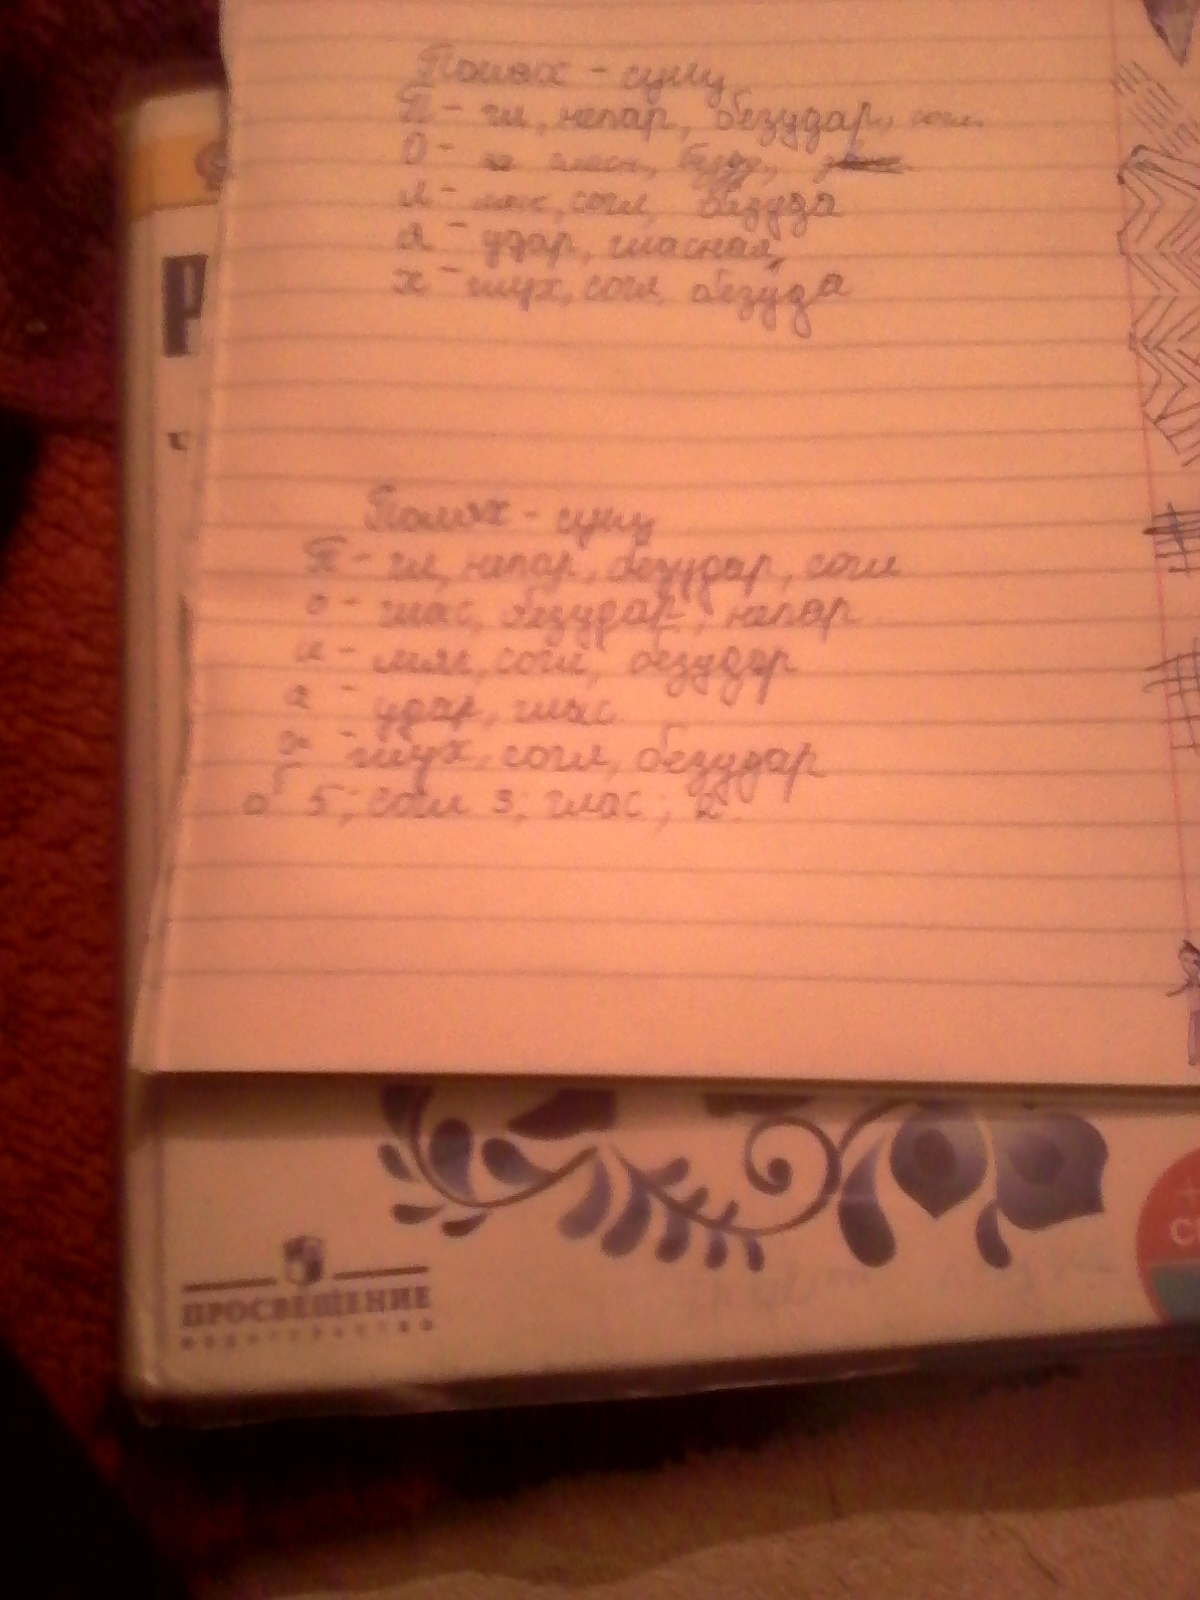 Полях - сущ
П - гл, непар, безудар, согл.
О - гласн, безуд,
л - мяг, согл, безуда
а - удар, гласная,
х - глух, согл, безуда
Полях - сущ
П - гл, непар, безудар, согл
о - глас, безудар, непар
л - мяг, согл, безудар
а - удар, глас
х - глух, согл, безудар
5; согл 3; глас; 2.
Р
ПРОСВЕЩЕНИЕ
ИЗДАТЕЛЬСТВО